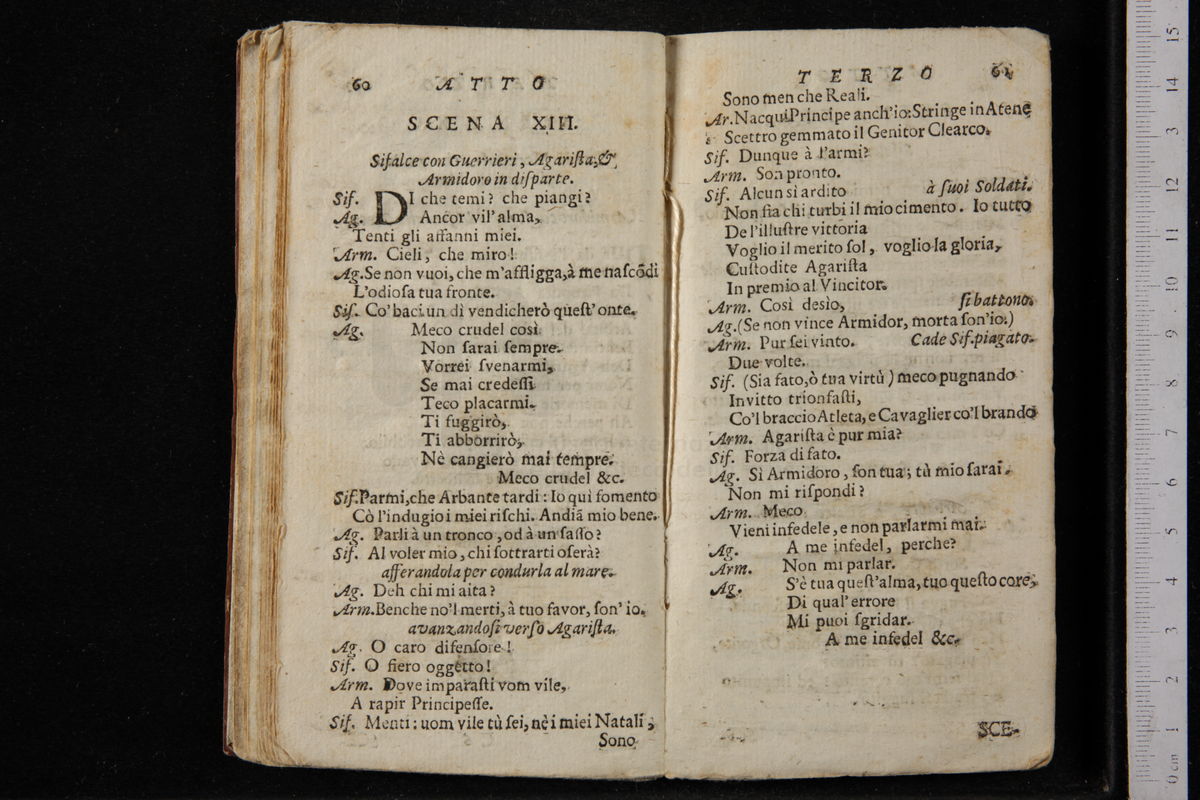 60 ATTO
SCENA XIII.
Sifalce con Guerrieri, Agariſta, &
Armidoro in diſparte.
Sif. DI che temi? che piangi?
Ag. Ancor vil'alma,
Tenti gli affanni miei.
Arm. Cieli, che miro!
Ag. Se non vuoi, che m'affligga, à me naſcõdi
L'odioſa tua fronte.
Sif. Co'baci un dì vendicherò queſt'onte.
Ag. Meco crudel così
Non ſarai ſempre.
Vorrei ſvenarmi,
Se mai credeſſi
Teco placarmi.
Ti fuggirò,
Ti abborrirò,
Nè cangierò mai tempre.
Meco crudel &c.
Sif. Parmi, che Arbante tardi: Io quì fomento
Cò l'indugio i miei riſchi. Andiã mio bene.
Ag. Parli à un tronco, od à un ſaſſo?
Sif. Al voler mio, chi ſottrarti oſerà?
afferandola per condurla al mare.
Ag. Deh chi mi aita?
Arm. Benche no'l merti, à tuo favor, ſon' io.
avanzandoſi verſo Agariſta.
Ag. O caro difenſore!
Sif. O fiero oggetto!
Arm. Dove imparaſti vom vile,
A rapir Principeſſe.
Sif. Menti: uom vile tù ſei, nè i miei Natali,
Sono
TERZO 61
Sono men che Reali.
Ar. Nacqui Principe anch'io: Stringe in Atene
Scettro gemmato il Genitor Clearco.
Sif. Dunque à l'armi?
Arm. Son pronto.
Sif. Alcun sì ardito à ſuoi Soldati.
Non ſia chi turbi il mio cimento. Io tutto
De l'illuſtre vittoria
Voglio il merito ſol, voglio la gloria,
Cuſtodite Agariſta
In premio al Vincitor.
Arm. Così desìo, ſi battono.
Ag. (Se non vince Armidor, morta ſon'io.)
Arm. Pur ſei vinto. Cade Sif. piagato.
Due volte.
Sif. (Sia fato, ò tua virtù) meco pugnando
Invitto trionfaſti,
Co'l braccio Atleta, e Cavaglier co'l brando
Arm. Agariſta è pur mia?
Sif. Forza di fato.
Ag. Sì Armidoro, ſon tua; tù mio ſarai.
Non mi riſpondi?
Arm. Meco
Vieni infedele, e non parlarmi mai.
Ag. A me infedel, perche?
Arm. Non mi parlar.
Ag. S'è tua queſt'alma, tuo queſto core,
Di qual'errore
Mi puoi ſgridar.
A me infedel &c.
SCE-
0 cm 1 2 3 4 5 6 7 8 9 10 11 12 13 14 15